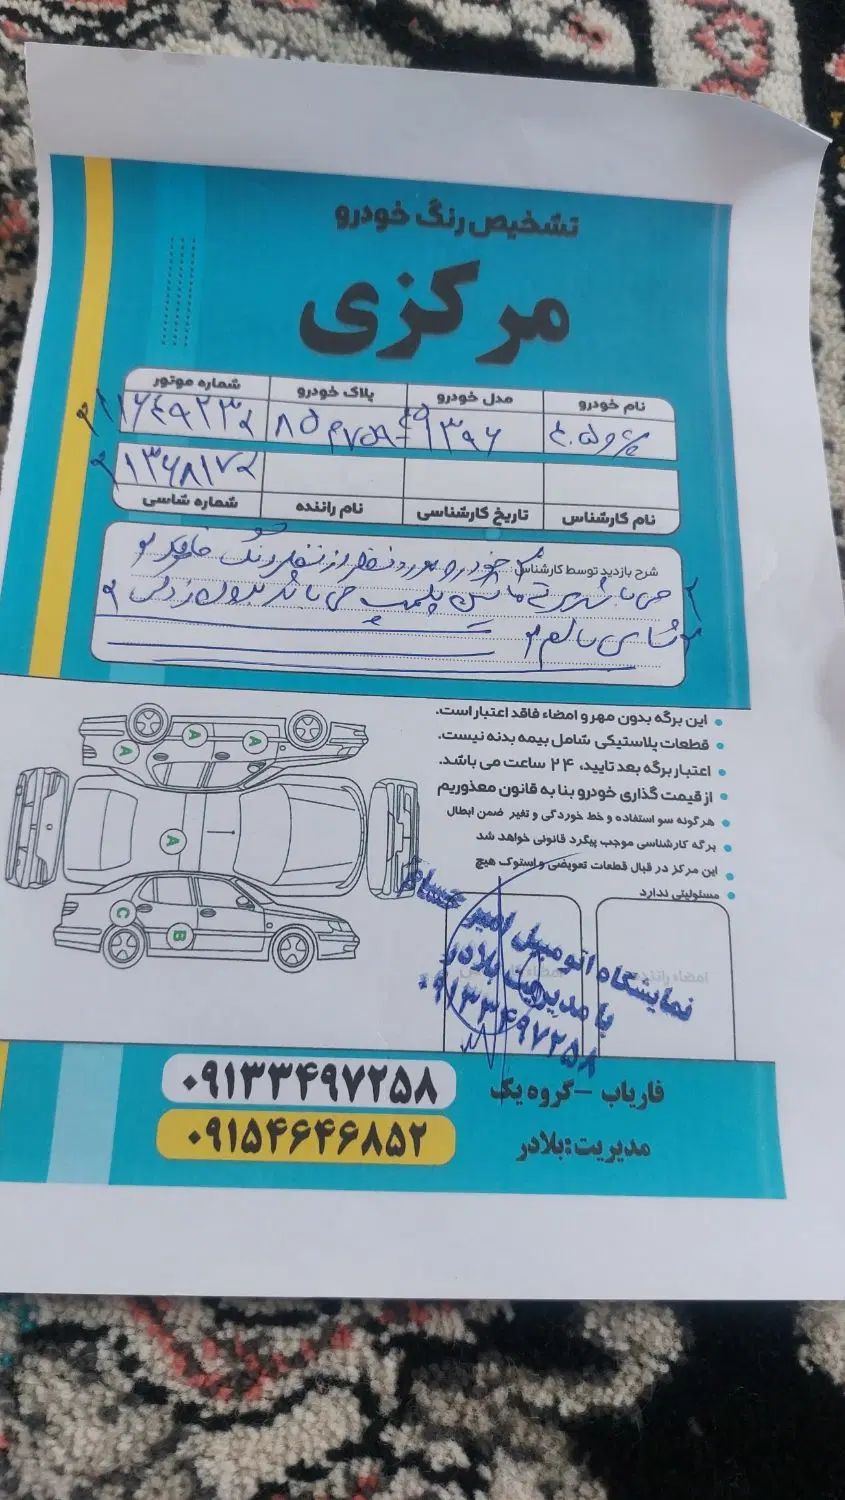 تشخیص رنگ خودرو
مرکزی
نام خودرو
مدل خودرو
پلاک خودرو
شماره موتور
۱۳۹۶
۱۱۶۴۹۲۳۲
۱۳۶۸۱۷۲
نام کارشناس
تاریخ کارشناسی
نام راننده
شماره شاسی
شرح بازدید توسط کارشناس
خودرو مورد نظر از نظر رنگ فاقد
می باشد پلمپ می باشد بدون زدگی
شاسی سالم
این برگه بدون مهر و امضاء فاقد اعتبار است.
قطعات پلاستیکی شامل بیمه بدنه نیست.
اعتبار برگه بعد تایید، ۲۴ ساعت می باشد.
از قیمت گذاری خودرو بنا به قانون معذوریم
هرگونه سو استفاده و خط خوردگی و تغیر ضمن ابطال
برگه کارشناسی موجب پیگرد قانونی خواهد شد
این مرکز در قبال قطعات تعویضی و استوک هیچ
مسئولیتی ندارد
A
A
A
A
C
B
امضاء راننده
نمایشگاه اتومبیل امیر حسام
با مدیریت بلادر
۰۹۱۳۳۴۹۷۲۵۸
فاریاب - گروه یک
۰۹۱۳۳۴۹۷۲۵۸
مدیریت: بلادر
۰۹۱۵۴۶۴۶۸۵۲